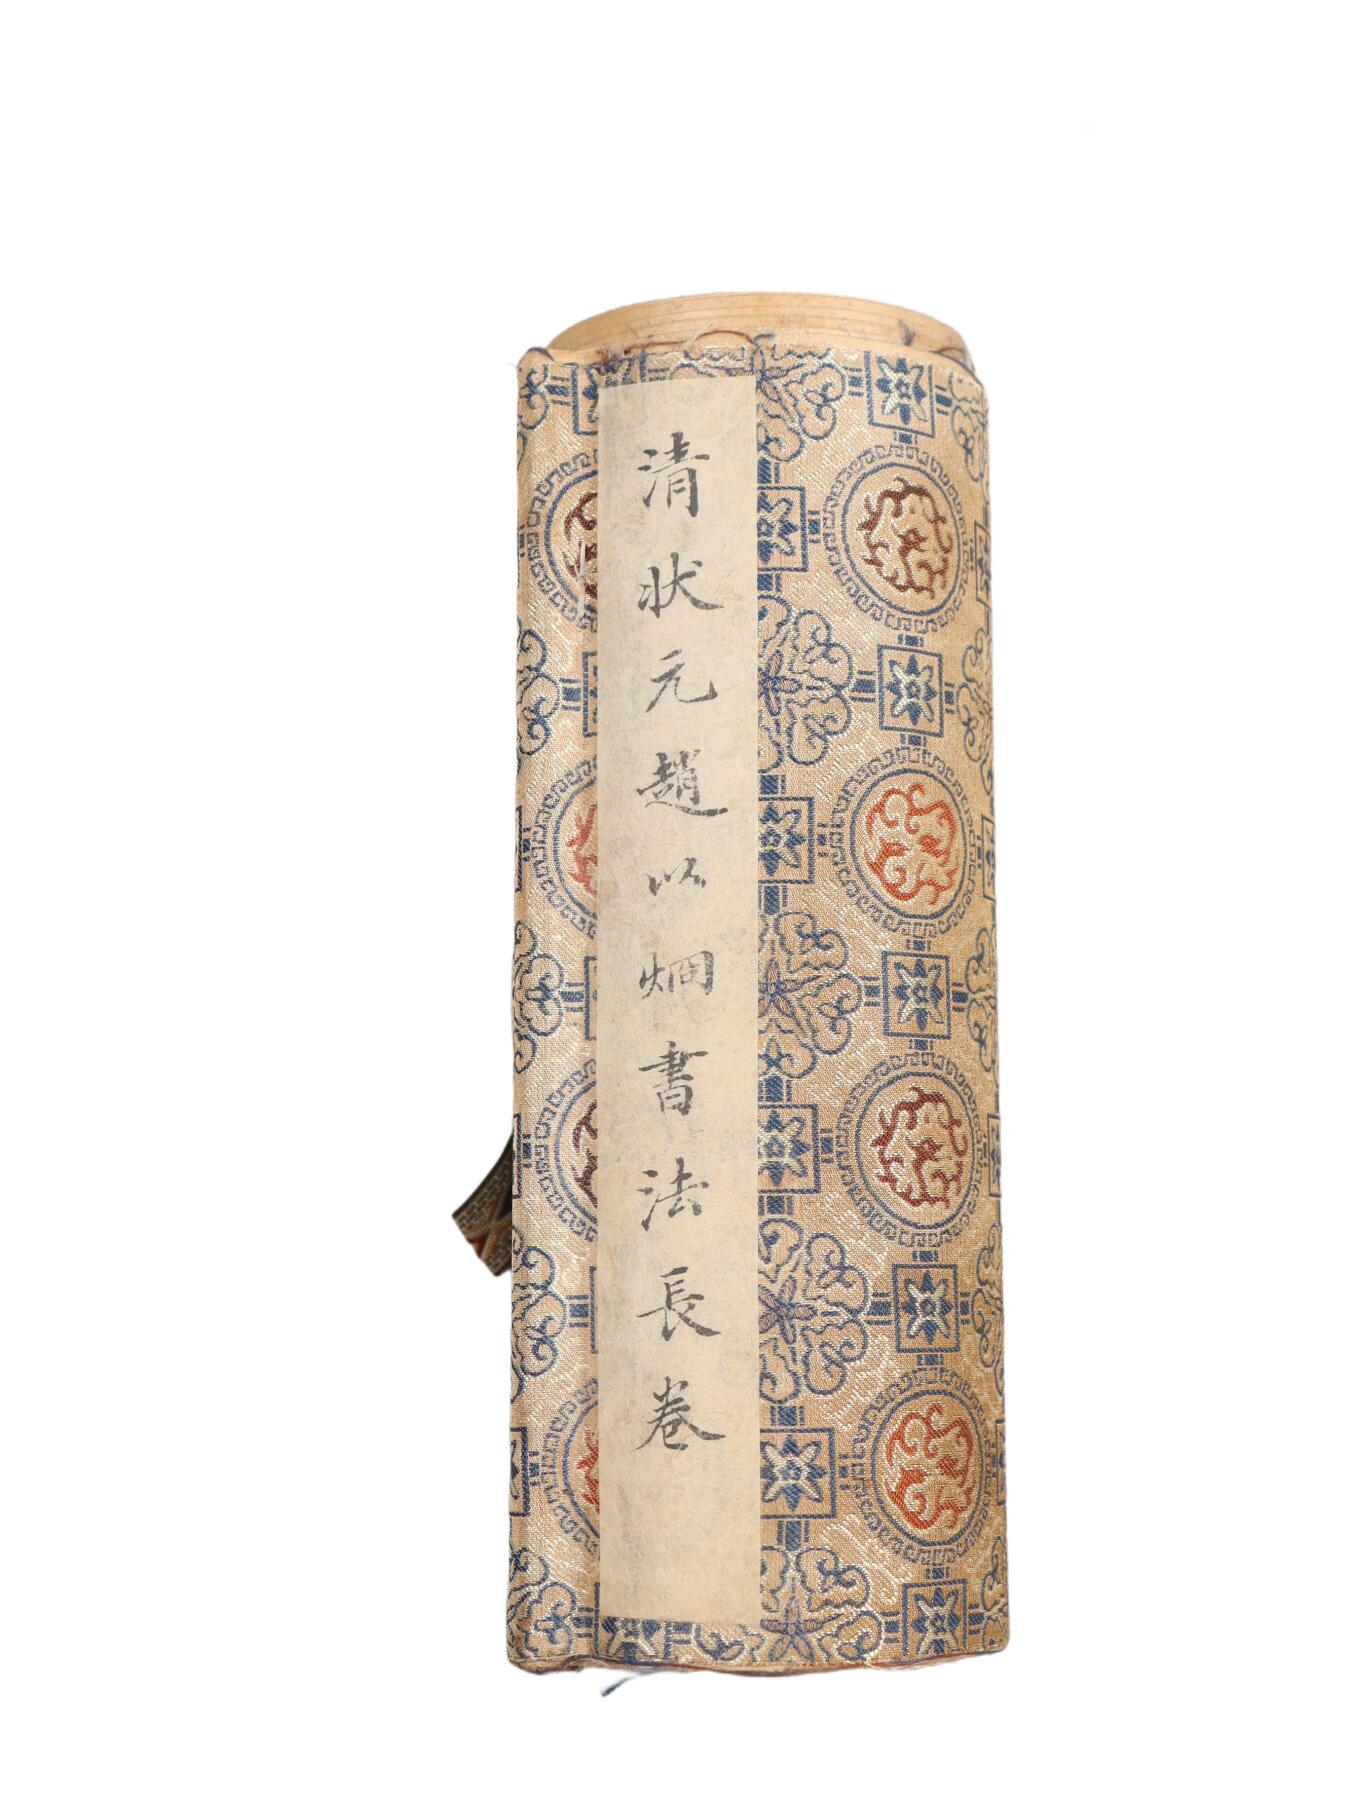 清狀元趙以炯書法長卷